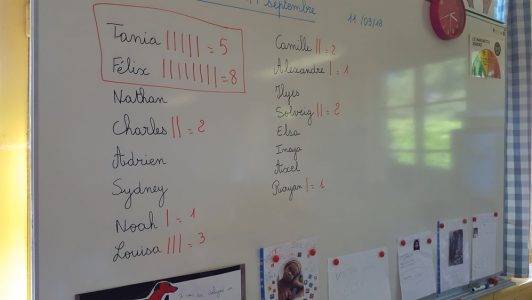 Septembre
11/09/19
Tania ||||| = 5
Félix |||||||| = 8
Nathan
Charles || = 2
Adrien
Sydney
Noah | = 1
Louisa ||| = 3
Camille || = 2
Alexandre | = 1
Ilyes
Solveig || = 2
Elsa
Imaya
Axel
Rayan | = 1